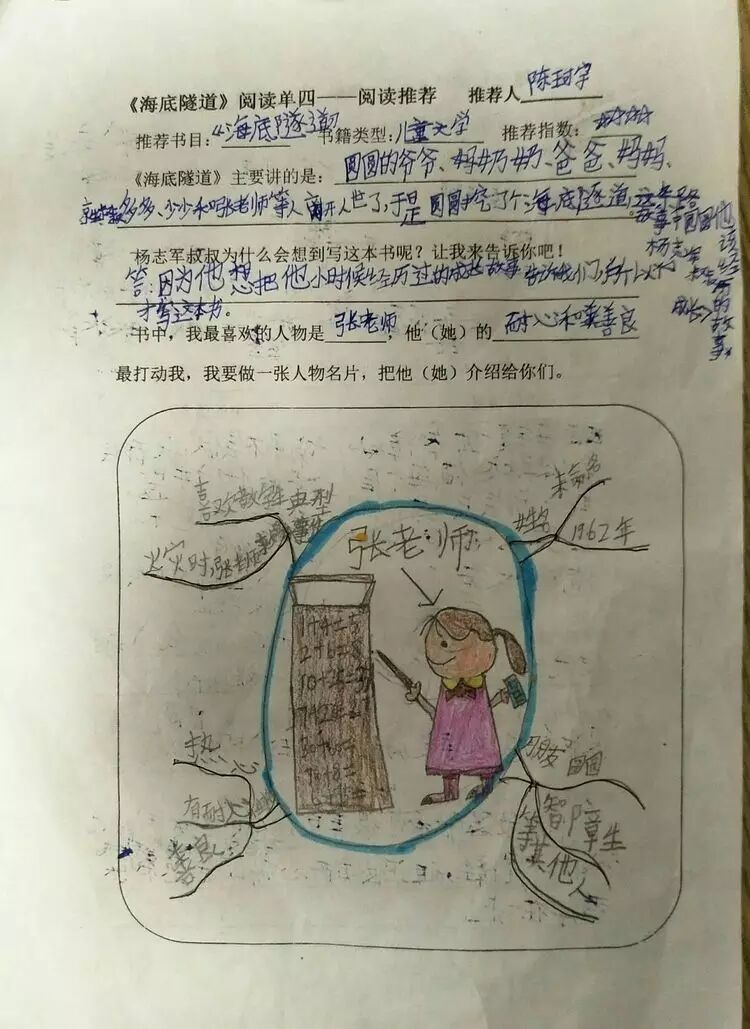 《海底隧道》阅读单四——阅读推荐 推荐人陈珂宇
推荐书目：《海底隧道》 书籍类型：儿童文学 推荐指数：
《海底隧道》主要讲的是：圆圆的爷爷、妈奶奶、爸爸、妈妈、
多多、少少和张老师等人离开人世了，于是圆圆挖了个海底隧道
杨志军叔叔为什么会想到写这本书呢？让我来告诉你吧！
答：因为他想把他小时候经历过的成长故事告诉我们
才写这本书。
书中，我最喜欢的人物是张老师，他（她）的耐心和善良
最打动我，我要做一张人物名片，把他（她）介绍给你们。
喜欢教学生 典型事件
火灾时，张老师
张老师
姓名
未命名
1962年
1+4=5
2+6=8
热
有耐心
善良
朋友
圆圆
智障生
等其他人